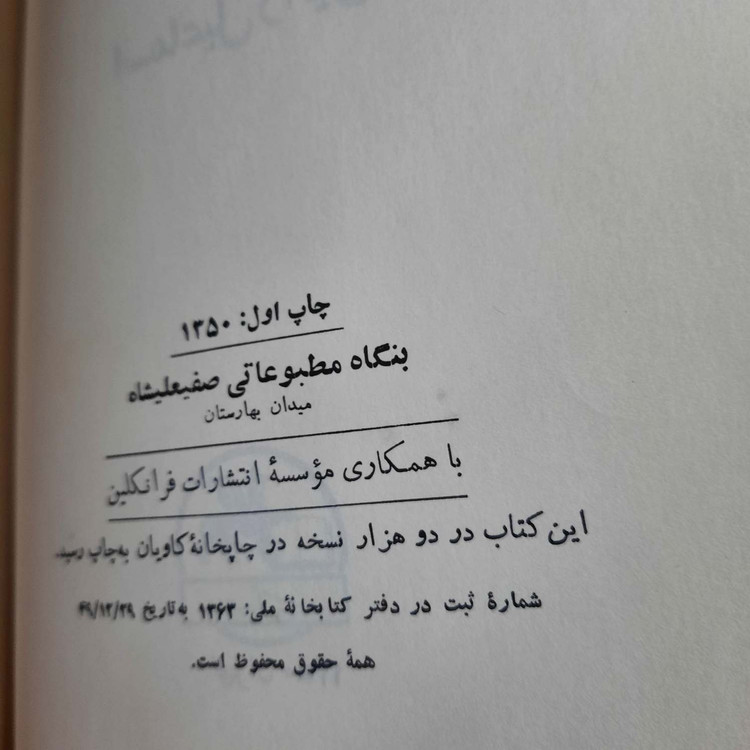 چاپ اول: ۱۳۵۰
بنگاه مطبوعاتی صفیعلیشاه
میدان بهارستان
با همکاری مؤسسهٔ انتشارات فرانکلین
این کتاب در دو هزار نسخه در چاپخانهٔ کاویان به‌چاپ رسید.
شمارهٔ ثبت در دفتر کتابخانهٔ ملی: ۱۳۶۳ به تاریخ ۴۹/۱۲/۲۹
همهٔ حقوق محفوظ است.